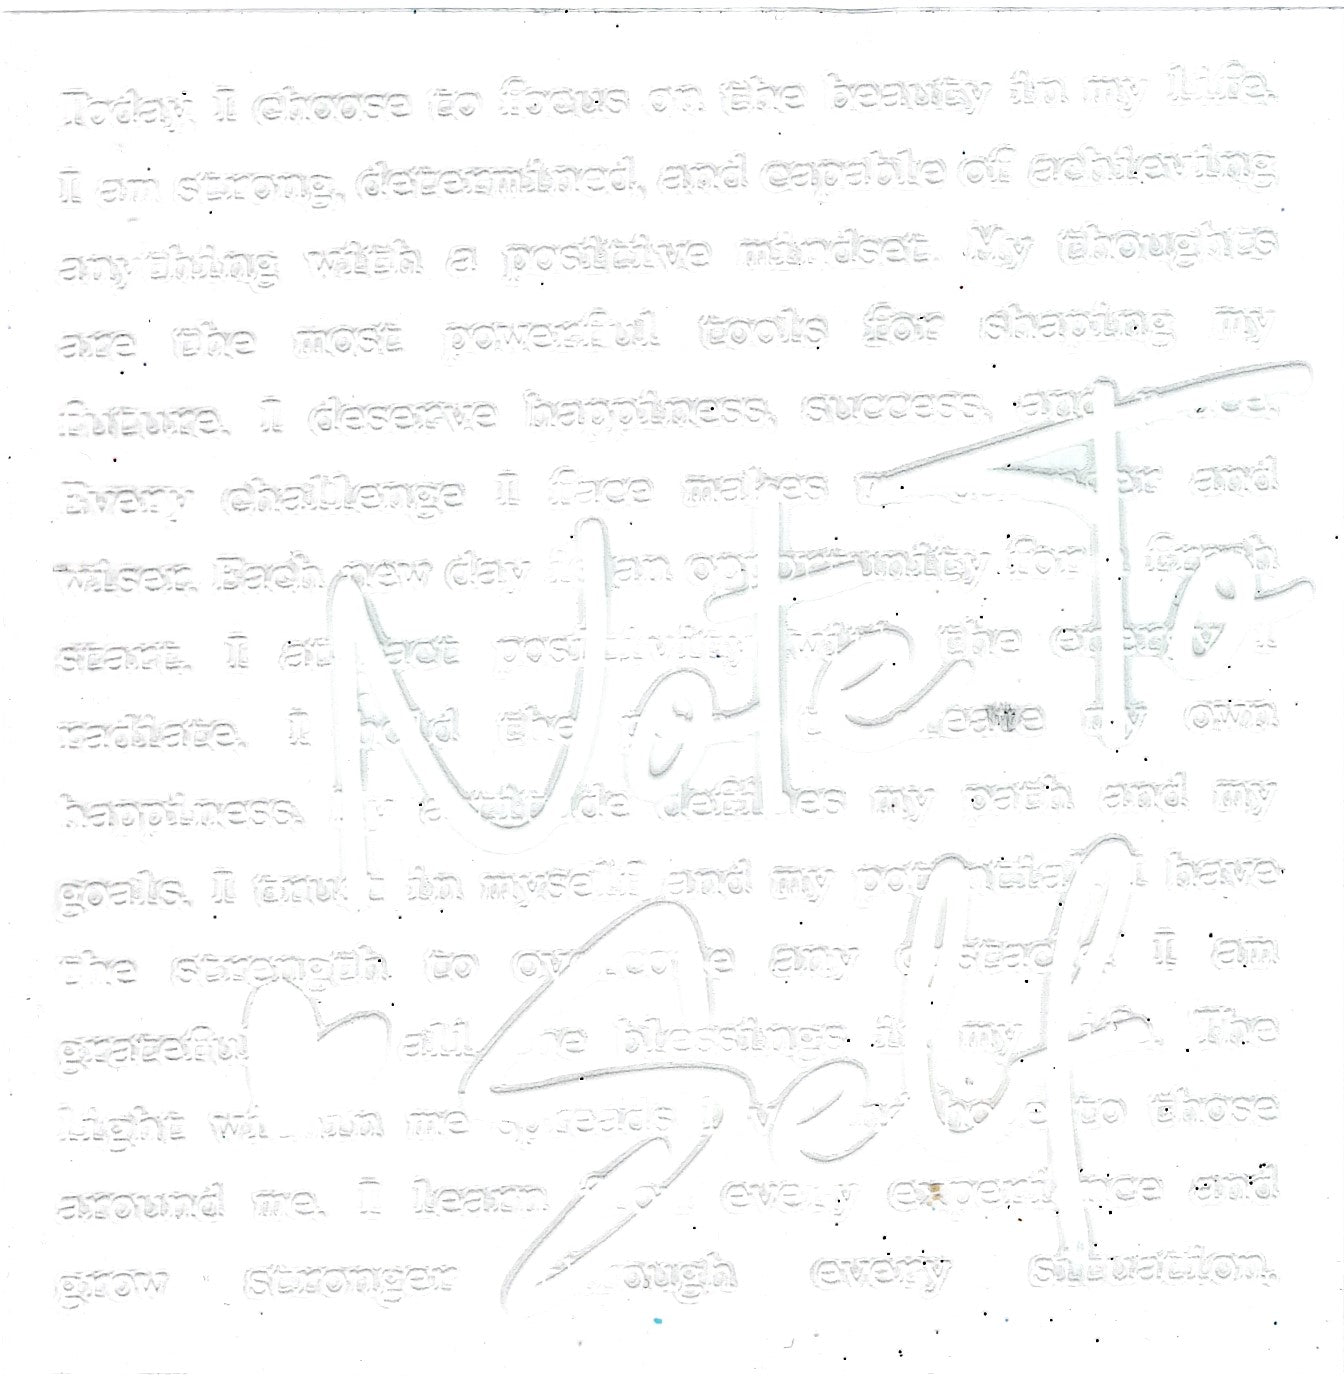 Today, I choose to focus on the beauty in my life.
I am strong, determined, and capable of achieving
anything with a positive mindset. My thoughts
are the most powerful tools for shaping my
future. I deserve happiness, success, and
Every challenge I face makes and
wiser. Each new day is an opportunity for a fresh
start. I attract positivity with the energy I
radiate. I hold the my own
happiness. My attitude defines my path and my
goals. I trust in myself and my potential. I have
the strength to overcome any obstacle. I am
grateful all the blessings in my life. The
light within me spreads to those
around me. I learn from every experience and
grow stronger through every situation.
Note To
Self